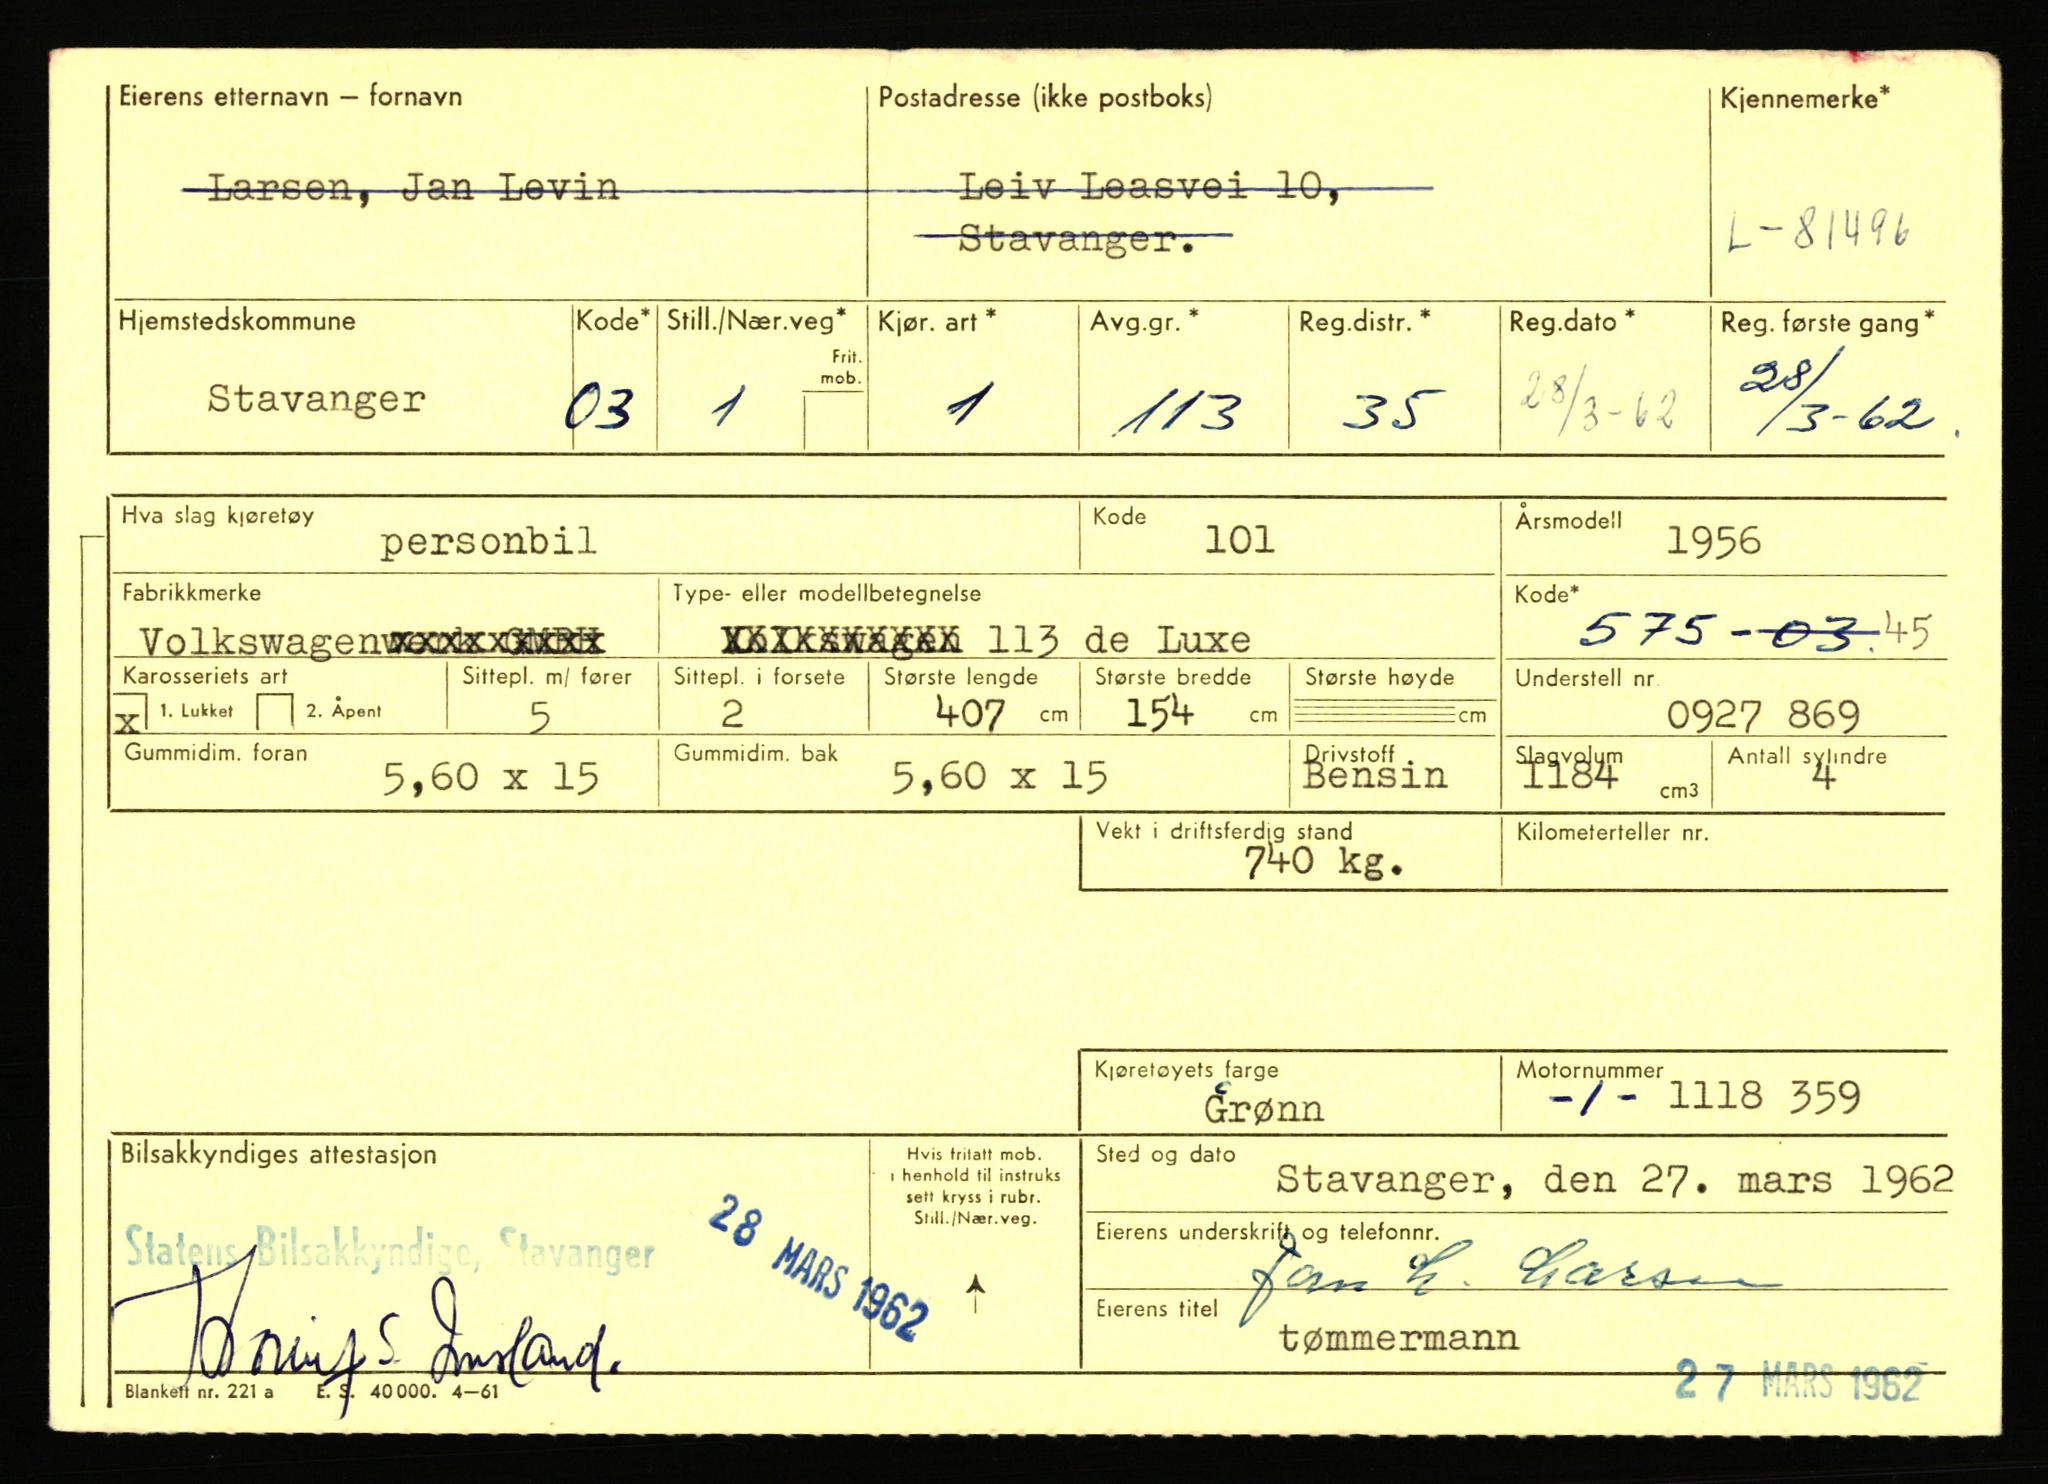 Eierens etternavn – fornavn
Postadresse (ikke postboks)
Kjennemerke*
Larsen, Jan Levin
Leiv Leasvei 10,
Stavanger.
L-81496
Hjemstedskommune
Kode*
Still./Nær.veg*
Kjør. art *
Avg.gr. *
Reg.distr. *
Reg.dato *
Reg. første gang*
Frit.
mob.
Stavanger
03
1
1
113
35
28/3-62
28/3-62.
Hva slag kjøretøy
personbil
Kode
101
Årsmodell
1956
Fabrikkmerke
Type- eller modellbetegnelse
Kode*
Volkswagen
Volkswagen 113 de Luxe
575-03.45
Karosseriets art
Sittepl. m/ fører
Sittepl. i forsete
Største lengde
Største bredde
Største høyde
Understell nr.
x 1. Lukket 2. Åpent
5
2
407 cm
154 cm
cm
0927 869
Gummidim. foran
5,60 x 15
Gummidim. bak
5,60 x 15
Drivstoff
Bensin
Slagvolum
1184 cm3
Antall sylindre
4
Vekt i driftsferdig stand
740 kg.
Kilometerteller nr.
Kjøretøyets farge
Grønn
Motornummer
-1- 1118 359
Bilsakkyndiges attestasjon
Hvis fritatt mob.
i henhold til instruks
sett kryss i rubr.
Still./Nær.veg.
Sted og dato
Stavanger, den 27. mars 1962
Statens Bilsakkyndige, Stavanger
28 MARS 1962
Eierens underskrift og telefonnr.
Jan L. Larsen
Eierens titel
tømmermann
27 MARS 1962
Blankett nr. 221 a E. S. 40 000. 4–61